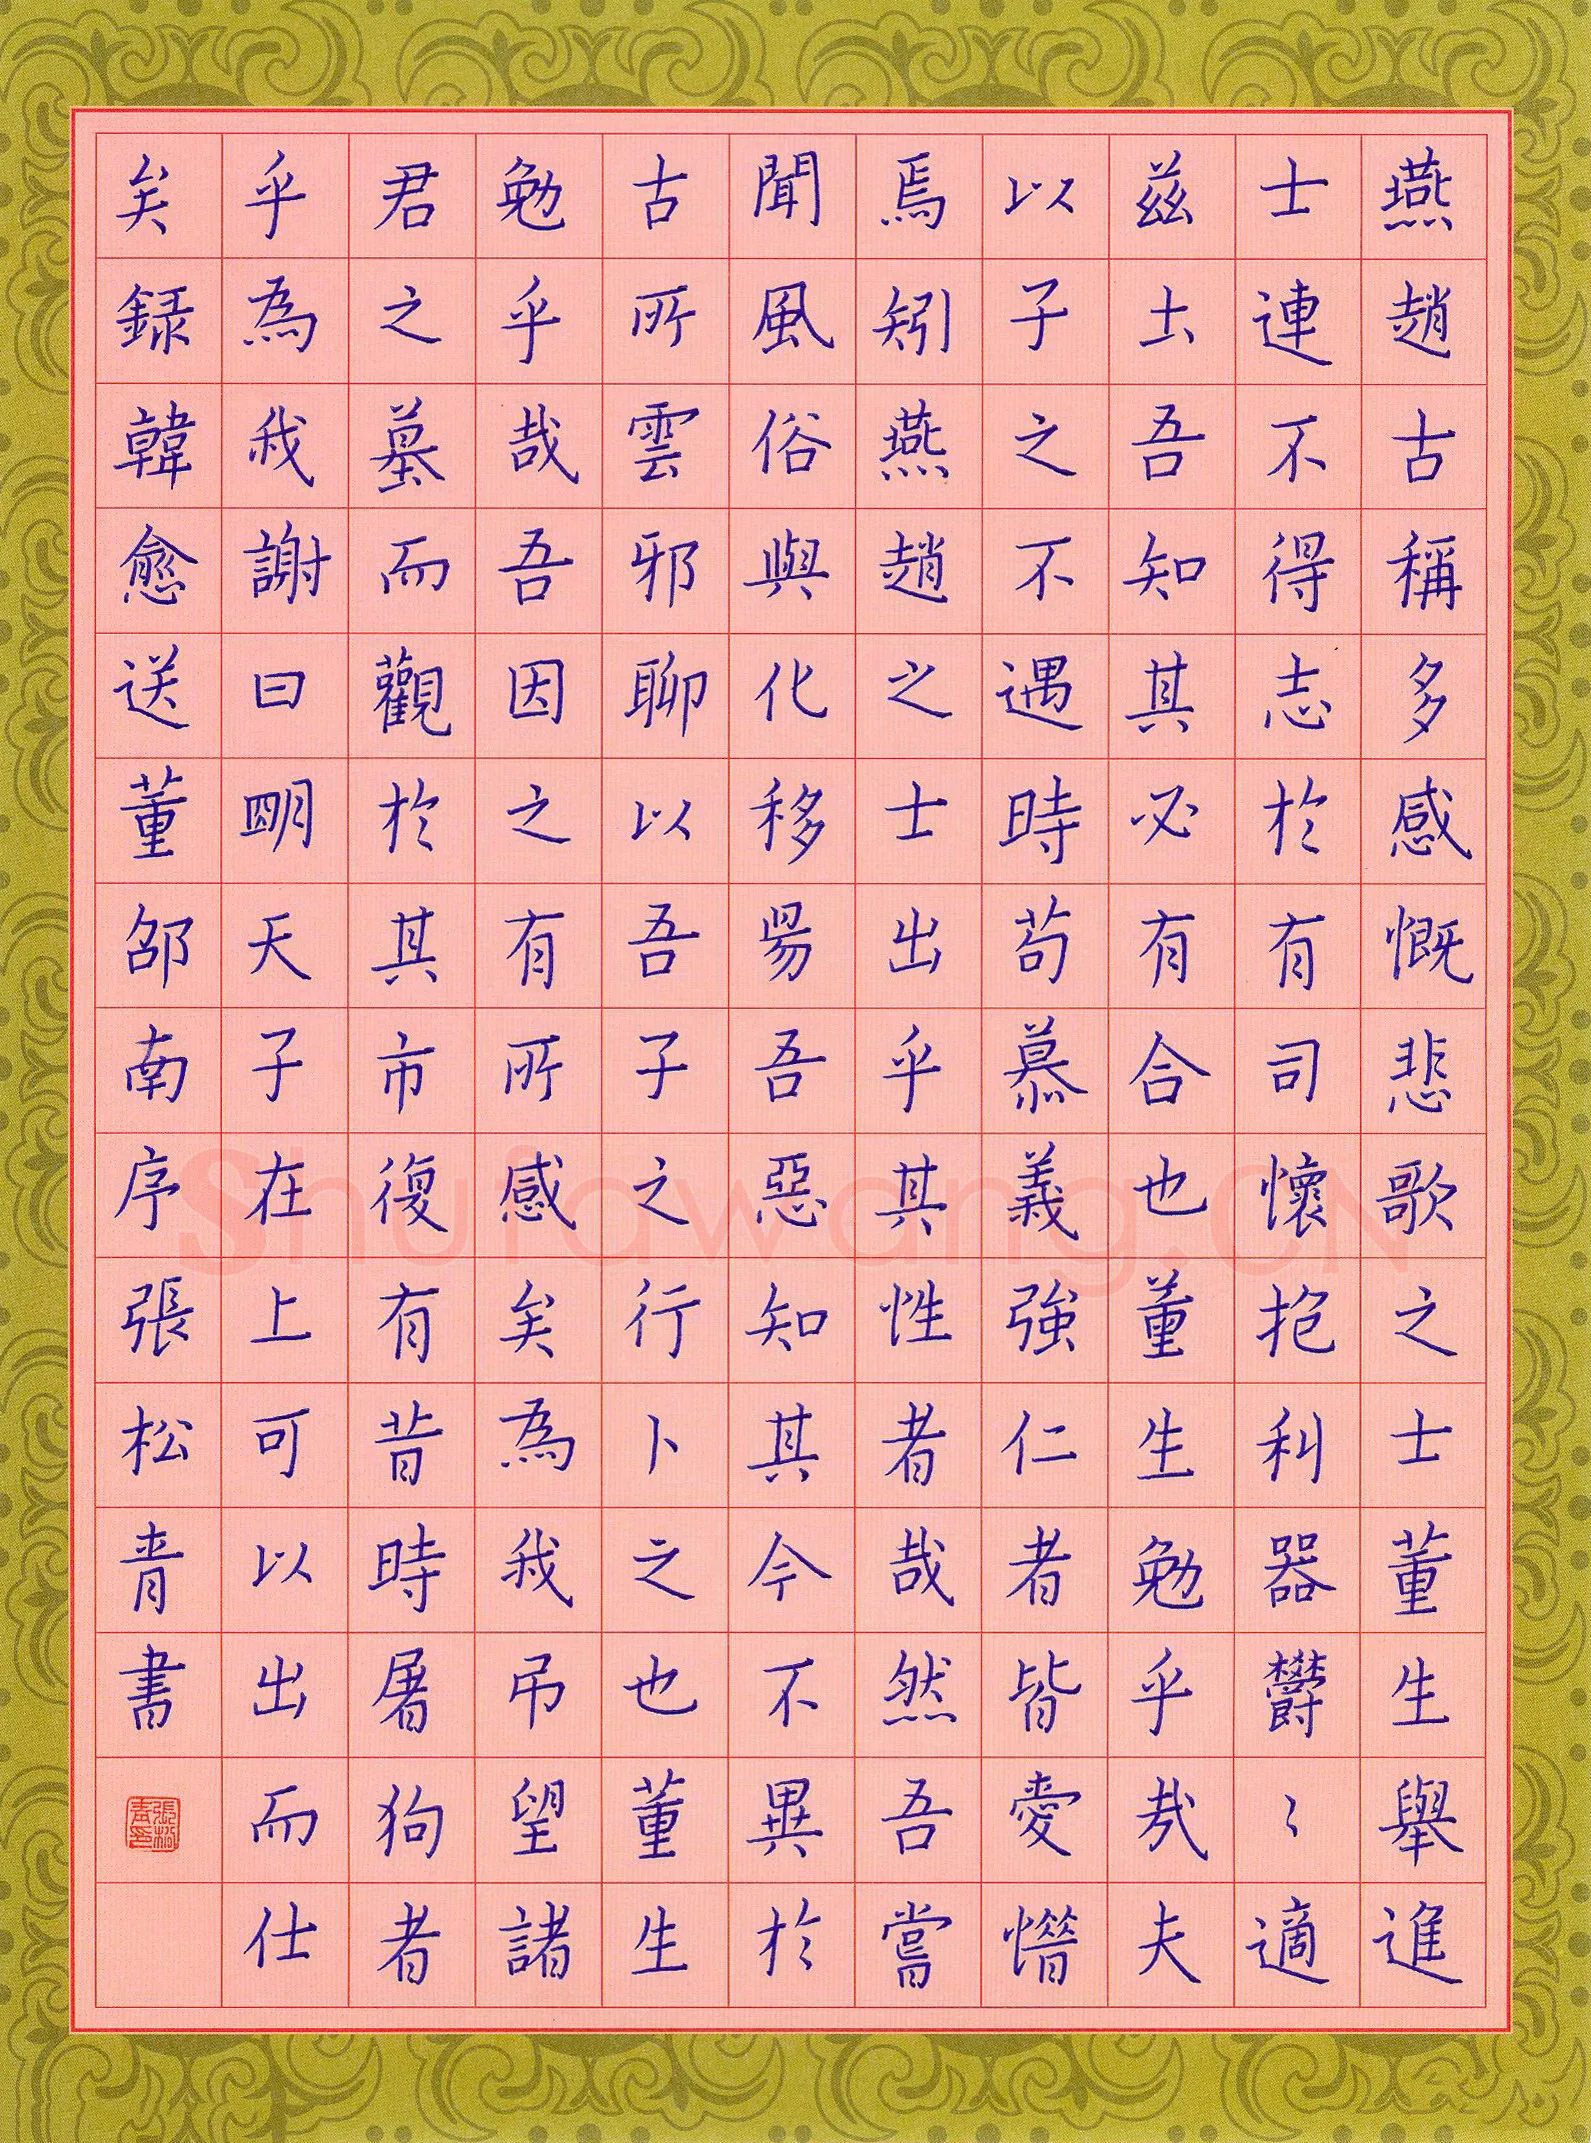 燕趙古稱多感慨悲歌之士董生舉進
士連不得志於有司懷抱利器鬱〻適
茲土吾知其必有合也董生勉乎哉夫
以子之不遇時苟慕義強仁者皆愛惜
焉矧燕趙之士出乎其性者哉然吾嘗
聞風俗與化移昜吾惡知其今不異於
古所雲邪聊以吾子之行卜之也董生
勉乎哉吾因之有所感矣為我吊望諸
君之墓而觀於其市復有昔時屠狗者
乎為我謝曰明天子在上可以出而仕
矣録韓愈送董邵南序張松青書
張松青印
Shufawang.CN